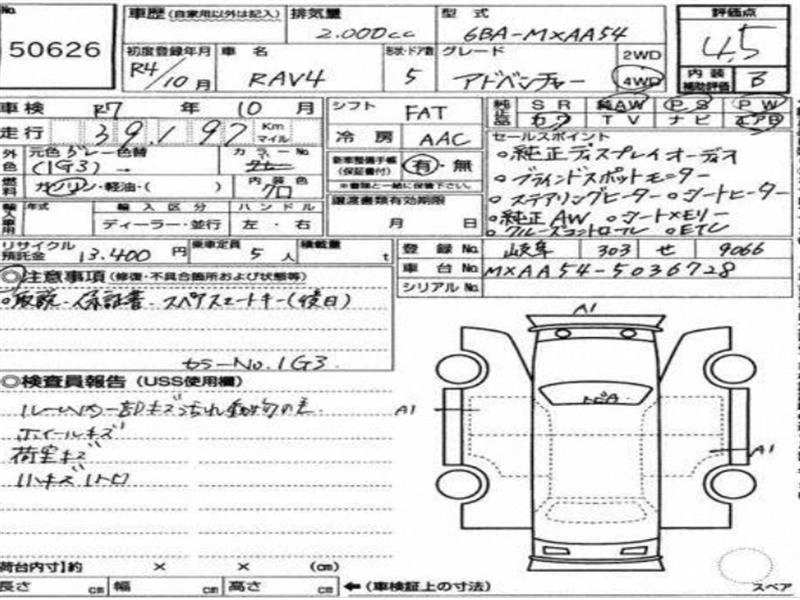 50626
車歴 (自家用以外は記入) 排気量 2.000cc 型式 6BA-MXAA54 評価点 4.5
初度登録年月 R4/10月 車名 RAV4 形状・ドア数 5 グレード アドベンチャー 2WD 4WD 内装補助評価 B
車検 R7年 10月 シフト FAT 純正品 SR 純AW PS PW
カワ TV ナビ エアB
走行 39,197 Km マイル 冷房 AAC セールスポイント
外色 元色 グレー 色替 (1G3) → カラーNo.
新車整備手帳(保証書付) 有・無
※書類と一緒に保管下さい。
燃料 ガソリン・軽油・( ) 内装色 クロ
○純正ディスプレイオーディオ
○ブラインドスポットモニター
○ステアリングヒーター ○シートヒーター
○純正AW ○シートメモリー
○クルーズコントロール ○ETC
輸入車用 年式 輸入区分 ディーラー・並行 ハンドル 左・右
譲渡書類有効期限 月 日
リサイクル預託金 13.400円 乗車定員 5人 積載量 t
登録No. 岐阜 303 せ 9066
車台No. MXAA54-5036728
シリアルNo.
◎注意事項 (修復・不具合箇所および状態等)
○取説・保証書・スペアスマートキー(後日)
カラーNo.1G3
◎検査員報告 (USS使用欄)
ホイールキズ
荷室キズ
A1
トビA
A1
A1
荷台内寸】約 × × (cm)
長さ cm 幅 cm 高さ cm ←(車検証上の寸法)
スペア